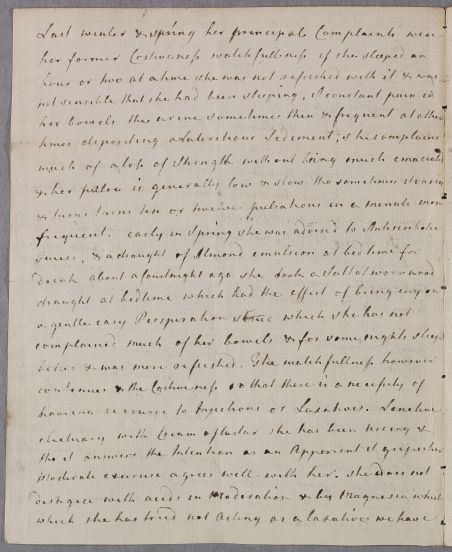 Last winter & spring her principal Complaints were
her former Costiveness watchfullness if she sleeped an
hour or two at a time she was not refreshed with it & was
not sensible that she had been sleeping, A constant pain in
her bowels the urine sometimes thin & frequent at other
times depositing a Lateritious Sediment, she complains
much of a loss of Strength without being much emaciated
& her pulse is generally low & slow tho sometimes it varies
& turns ten or twelve pulsations in a minute more
frequent. early in Spring she was advised to Antiscorbutic
Juices, & a draught of Almond emulsion at bed time for
drink about a fourtnight ago she took a Salt of wormwood
draught at bedtime which had the effect of bring on
a gentle easy Perspiration since which she has not
complained much of her bowels & for some nights sleep
better & was more refreshed. The watchfullness however
continues & the Costiveness so that there is a necessity of
having recourse to Injections or Laxatives. Lenitive
electuary with Cream of tartar she has been useing &
tho it answers the Intention as an Apperient it gripes her
Moderate exercise agrees well with her. she does not
disagree with acids in Moderation & by Magnesia which
which she has tried not Acting as a laxative we have